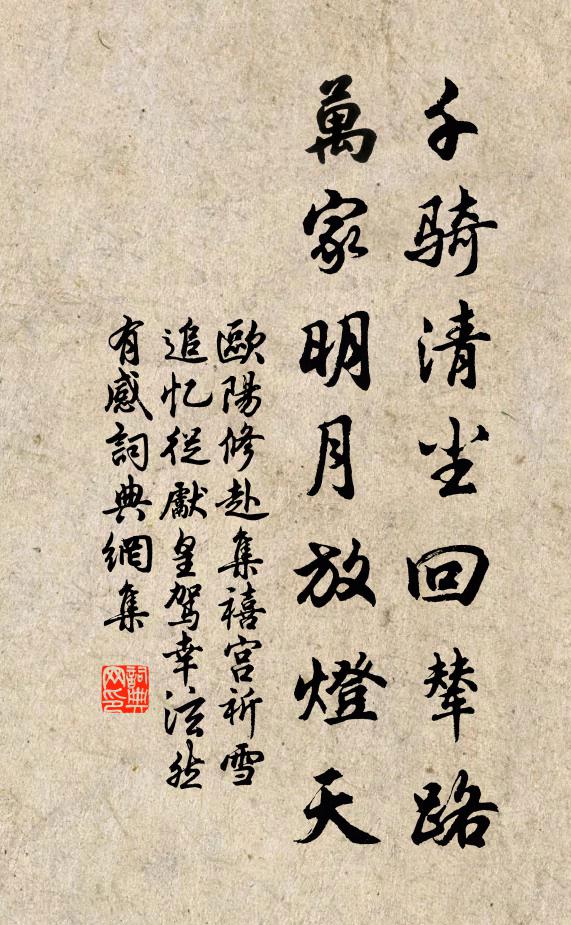 千骑清尘回辇路
萬家明月放燈天
歐陽修赴集禧宫祈雪
追忆從獻皇駕幸泫然
有感詞典網集
詞典网印